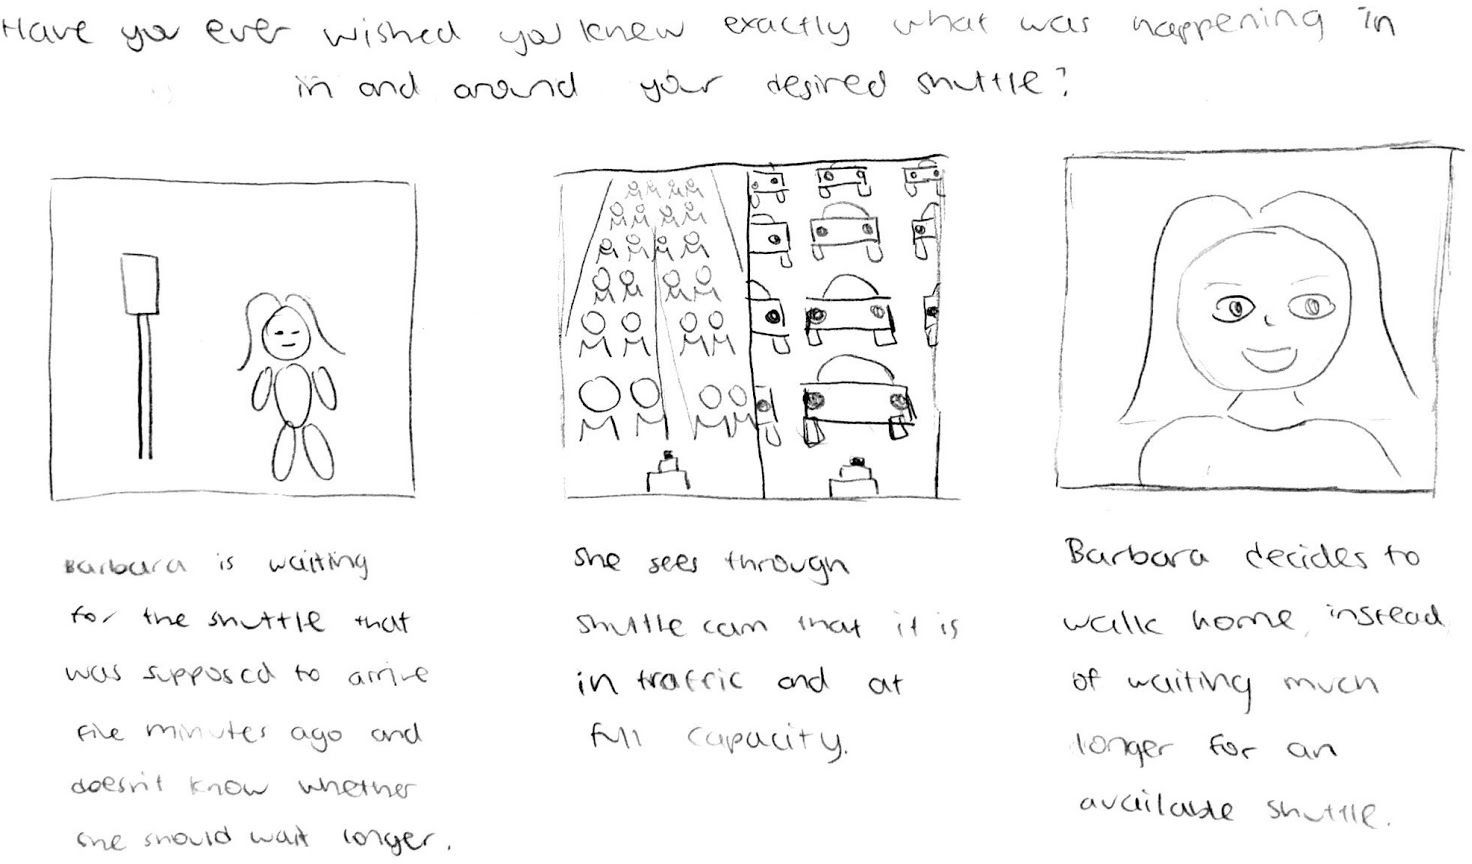 Have you ever wished you knew exactly what was happening in
in and around your desired shuttle?
Barbara is waiting
for the shuttle that
was supposed to arrive
five minutes ago and
doesn't know whether
she should wait longer.
She sees through
shuttle cam that it is
in traffic and at
full capacity.
Barbara decides to
walk home, instead
of waiting much
longer for an
available shuttle.